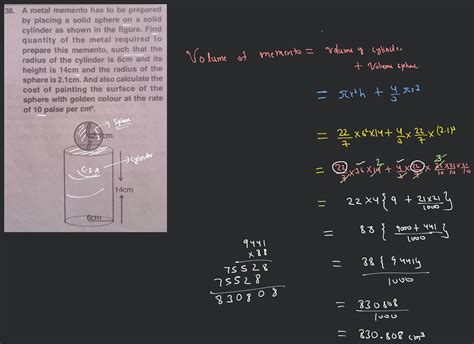 38. A metal memento has to be prepared
by placing a solid sphere on a solid
cylinder as shown in the figure. Find
quantity of the metal required to
prepare this memento, such that the
radius of the cylinder is 6cm and its
height is 14cm and the radius of the
sphere is 2.1cm. And also calculate the
cost of painting the surface of the
sphere with golden colour at the rate
of 10 paise per cm².
Sphere
2.1cm
Cylinder
C.S.A
14cm
6cm
Volume of memento = volume of cylinder
+ Volume sphere
= πr²h + 4/3 πr3
= 22/7 × 6² × 14 + 4/3 × 22/7 × (2.1)³
= 22/7 × 36 × 14 + 4/3 × 22/7 × 21/10 × 21/10 × 21/10
= 22 × 4 { 9 + 21×21/1000 }
= 88 { 9000 + 441 / 1000 }
= 88 { 9441 } / 1000
= 830808 / 1000
= 830.808 cm³
9441
×88
75528
75528
830808